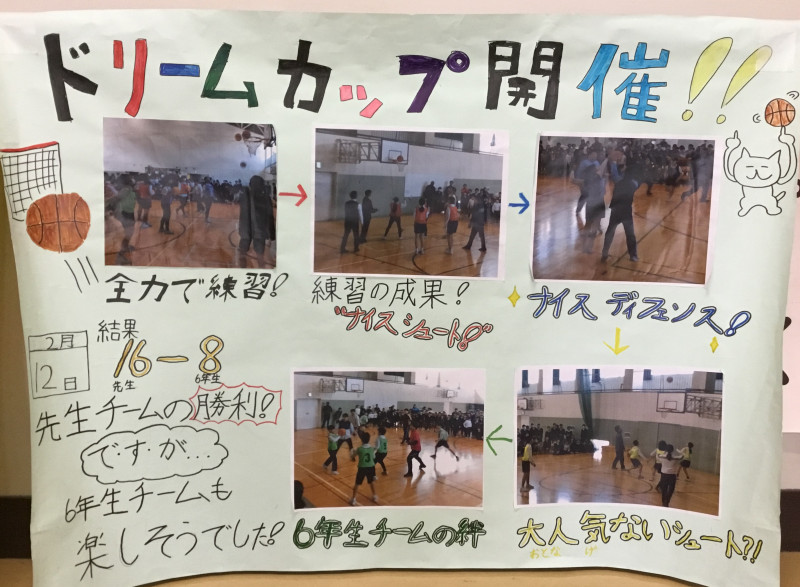 ドリームカップ開催!!
全力で練習!
練習の成果!
"ナイスシュート!"
ナイス ディフェンス!
2月
12日
結果
16-8
先生
6年生
先生チームの勝利!
で.す.が...
6年生チームも
楽しそうでした!
6年生チームの絆
大人気ないシュート?!
おとな げ